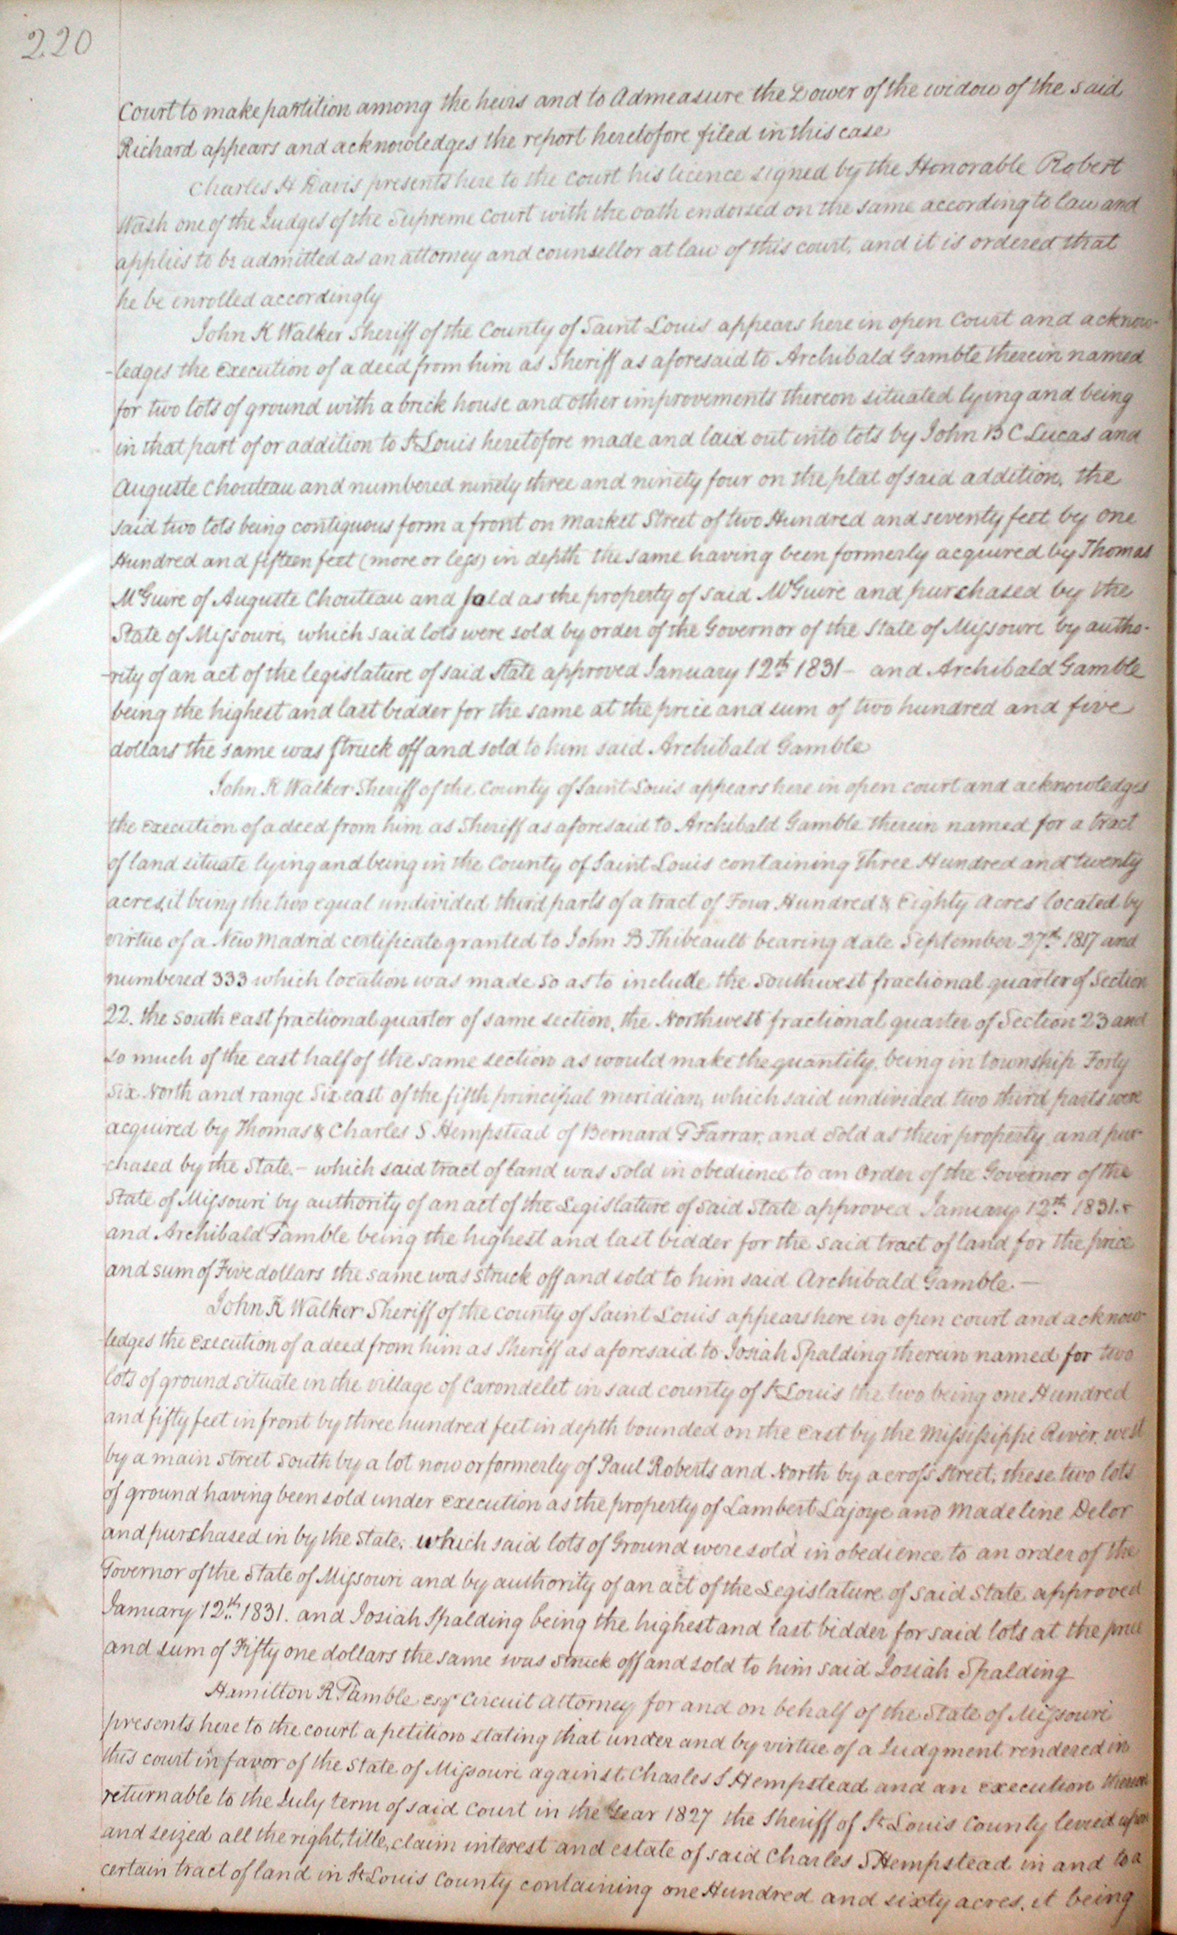 220
Court to make partition among the heirs and to Admeasure the Dower of the widow of the said
Richard appears and acknowledges the report heretofore filed in this case
Charles H Davis presents here to the court his licence signed by the Honorable Robert
Wash one of the Judges of the Supreme Court with the oath endorsed on the same according to law and
applies to be admitted as an attorney and counsellor at law of this court, and it is ordered that
he be enrolled accordingly
John K Walker Sheriff of the County of Saint Louis appears here in open Court and acknow-
-ledges the execution of a deed from him as Sheriff as aforesaid to Archibald Gamble therein named
for two lots of ground with a brick house and other improvements thereon situated lying and being
in that part of or addition to St Louis heretofore made and laid out into lots by John B C Lucas and
Auguste Chouteau and numbered ninety three and ninety four on the plat of said addition, the
said two lots being contiguous form a front on Market Street of two Hundred and seventy feet by one
Hundred and fifteen feet (more or less) in depth the same having been formerly acquired by Thomas
McGuire of Auguste Chouteau and sold as the property of said McGuire and purchased by the
State of Missouri, which said lots were sold by order of the Governor of the State of Missouri by autho-
-rity of an act of the legislature of said State approved January 12th 1831 - and Archibald Gamble
being the highest and last bidder for the same at the price and sum of two hundred and five
dollars the same was struck off and sold to him said Archibald Gamble
John K Walker Sheriff of the County of Saint Louis appears here in open court and acknowledges
the execution of a deed from him as Sheriff as aforesaid to Archibald Gamble therein named for a tract
of land situate lying and being in the County of Saint Louis containing Three Hundred and twenty
acres, it being the two equal undivided third parts of a tract of Four Hundred & Eighty Acres located by
virtue of a New Madrid certificate granted to John B Thibeault bearing date September 27th 1817 and
numbered 333 which location was made so as to include the Southwest fractional quarter of Section
22. the South East fractional quarter of same section, the Northwest fractional quarter of Section 23 and
so much of the east half of the same section as would make the quantity, being in township Forty
Six North and range Six east of the fifth principal meridian, which said undivided two third parts were
acquired by Thomas & Charles S Hempstead of Bernard G Farrar, and sold as their property, and pur-
-chased by the State. - which said tract of land was sold in obedience to an Order of the Governor of the
State of Missouri by authority of an act of the Legislature of said State approved January 12th 1831. &
and Archibald Gamble being the highest and last bidder for the said tract of land for the price
and sum of Five dollars the same was struck off and sold to him said Archibald Gamble. —
John K Walker Sheriff of the county of Saint Louis appears here in open court and acknow-
-ledges the execution of a deed from him as Sheriff as aforesaid to Josiah Spalding therein named for two
lots of ground situate in the village of Carondelet in said county of St Louis the two being one Hundred
and fifty feet in front by three hundred feet in depth bounded on the East by the Mississippi River, west
by a main street South by a lot now or formerly of Paul Roberts and North by a cross street, these two lots
of ground having been sold under execution as the property of Lambert Lajoye and Madeline Delor
and purchased in by the State; which said lots of Ground were sold in obedience to an order of the
Governor of the State of Missouri and by authority of an act of the Legislature of said State approved
January 12th 1831. and Josiah Spalding being the highest and last bidder for said lots at the price
and sum of Fifty one dollars the same was struck off and sold to him said Josiah Spalding
Hamilton R Gamble Esqr Circuit Attorney for and on behalf of the State of Missouri
presents here to the court a petition stating that under and by virtue of a Judgment rendered in
this court in favor of the State of Missouri against Charles S Hempstead and an execution thereon
returnable to the July term of said Court in the Year 1827 the Sheriff of St Louis County levied upon
and seized all the right, title, claim interest and estate of said Charles S Hempstead in and to a
certain tract of land in St Louis County containing one Hundred and sixty acres, it being